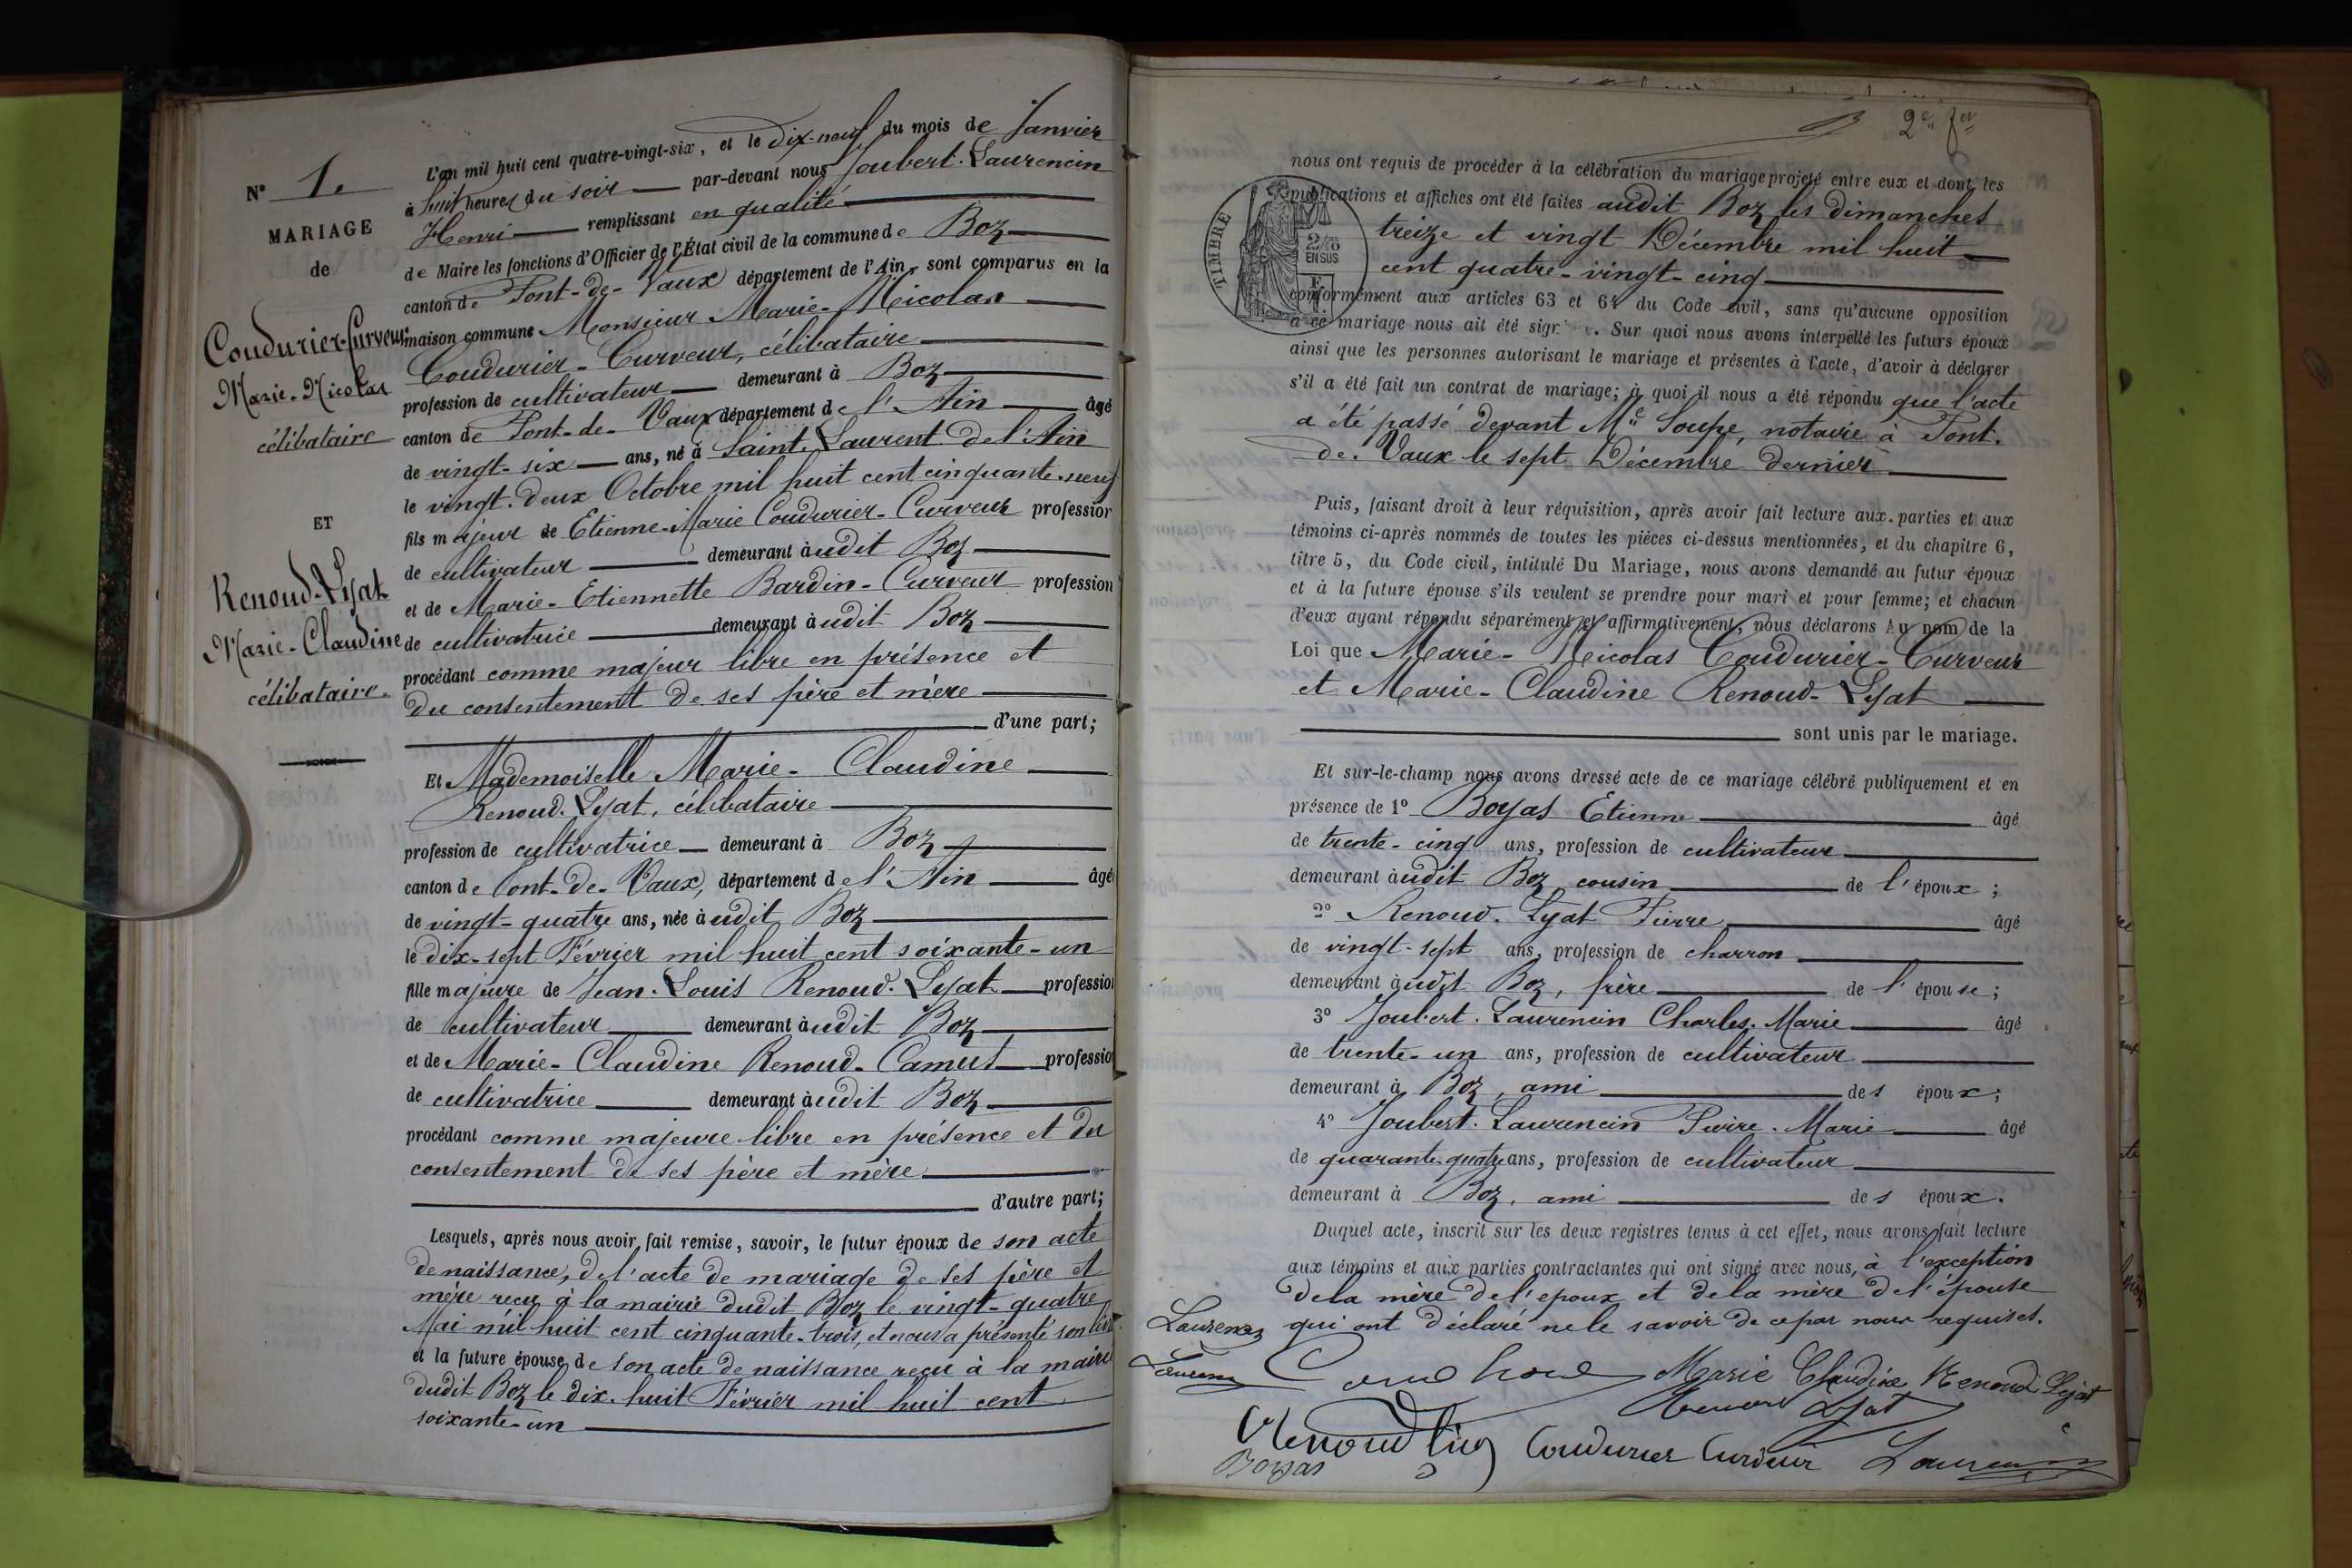 N° 1.
MARIAGE
de
Coudurier-Curveur
Marie-Nicolas
célibataire
ET
Renoud-Lyat
Marie-Claudine
célibataire.
L'an mil huit cent quatre-vingt-six, et le dix-neuf du mois de Janvier
à huit heures du soir par-devant nous Joubert-Laurencin
Henri remplissant en qualité
de Maire les fonctions d'Officier de l'État civil de la commune de Boz
canton de Pont-de-Vaux département de l'Ain, sont comparus en la
maison commune Monsieur Marie-Nicolas
Coudurier-Curveur, célibataire
profession de cultivateur demeurant à Boz
canton de Pont-de-Vaux département de l'Ain âgé
de vingt-six ans, né à Saint-Laurent de l'Ain
le vingt-deux Octobre mil huit cent cinquante-neuf
fils majeur de Etienne-Marie Coudurier-Curveur profession
de cultivateur demeurant audit Boz
et de Marie-Etiennette Bardin-Curveur profession
de cultivatrice demeurant audit Boz
procédant comme majeur libre en présence et
du consentement de ses père et mère
d'une part;
Et Mademoiselle Marie-Claudine
Renoud-Lyat, célibataire
profession de cultivatrice demeurant à Boz
canton de Pont-de-Vaux, département de l'Ain âgée
de vingt-quatre ans, née audit Boz
le dix-sept Février mil huit cent soixante-un
fille majeure de Jean-Louis Renoud-Lyat profession
de cultivateur demeurant audit Boz
et de Marie-Claudine Renoud-Camus profession
de cultivatrice demeurant audit Boz
procédant comme majeure libre en présence et du
consentement de ses père et mère
d'autre part;
Lesquels, après nous avoir fait remise, savoir, le futur époux de son acte
de naissance, de l'acte de mariage de ses père et
mère reçu à la mairie dudit Boz le vingt-quatre
Mai mil huit cent cinquante-trois, et nous a présenté son
et la future épouse de son acte de naissance reçu à la mairie
dudit Boz le dix-huit Février mil huit cent
soixante-un
2e
nous ont requis de procéder à la célébration du mariage projeté entre eux et dont les
publications et affiches ont été faites audit Boz les dimanches
treize et vingt Décembre mil huit
cent quatre-vingt-cinq
TIMBRE
2/10
EN SUS
conformément aux articles 63 et 64 du Code civil, sans qu'aucune opposition
à ce mariage nous ait été sign. Sur quoi nous avons interpellé les futurs époux
ainsi que les personnes autorisant le mariage et présentes à l'acte, d'avoir à déclarer
s'il a été fait un contrat de mariage; à quoi il nous a été répondu que l'acte
a été passé devant Me Soupe, notaire à Pont-
de-Vaux le sept Décembre dernier
Puis, faisant droit à leur réquisition, après avoir fait lecture aux parties et aux
témoins ci-après nommés de toutes les pièces ci-dessus mentionnées, et du chapitre 6,
titre 5, du Code civil, intitulé Du Mariage, nous avons demandé au futur époux
et à la future épouse s'ils veulent se prendre pour mari et pour femme; et chacun
d'eux ayant répondu séparément et affirmativement, nous déclarons Au nom de la
Loi que Marie-Nicolas Coudurier-Curveur
et Marie-Claudine Renoud-Lyat
sont unis par le mariage.
Et sur-le-champ nous avons dressé acte de ce mariage célébré publiquement et en
présence de 1° Boyas Etienne âgé
de trente-cinq ans, profession de cultivateur
demeurant audit Boz, cousin de l'époux;
2° Renoud-Lyat Pierre âgé
de vingt-sept ans, profession de charron
demeurant audit Boz, frère de l'épouse;
3° Joubert-Laurencin Charles-Marie âgé
de trente-un ans, profession de cultivateur
demeurant à Boz, ami des époux;
4° Joubert-Laurencin Pierre-Marie âgé
de quarante-quatre ans, profession de cultivateur
demeurant à Boz, ami des époux.
Duquel acte, inscrit sur les deux registres tenus à cet effet, nous avons fait lecture
aux témoins et aux parties contractantes qui ont signé avec nous, à l'exception
de la mère de l'époux et de la mère de l'épouse
qui ont déclaré ne le savoir de ce par nous requises.
Marie Claudine Renoud Lyat
Renoud Lyat
Coudurier Curveur
Boyas